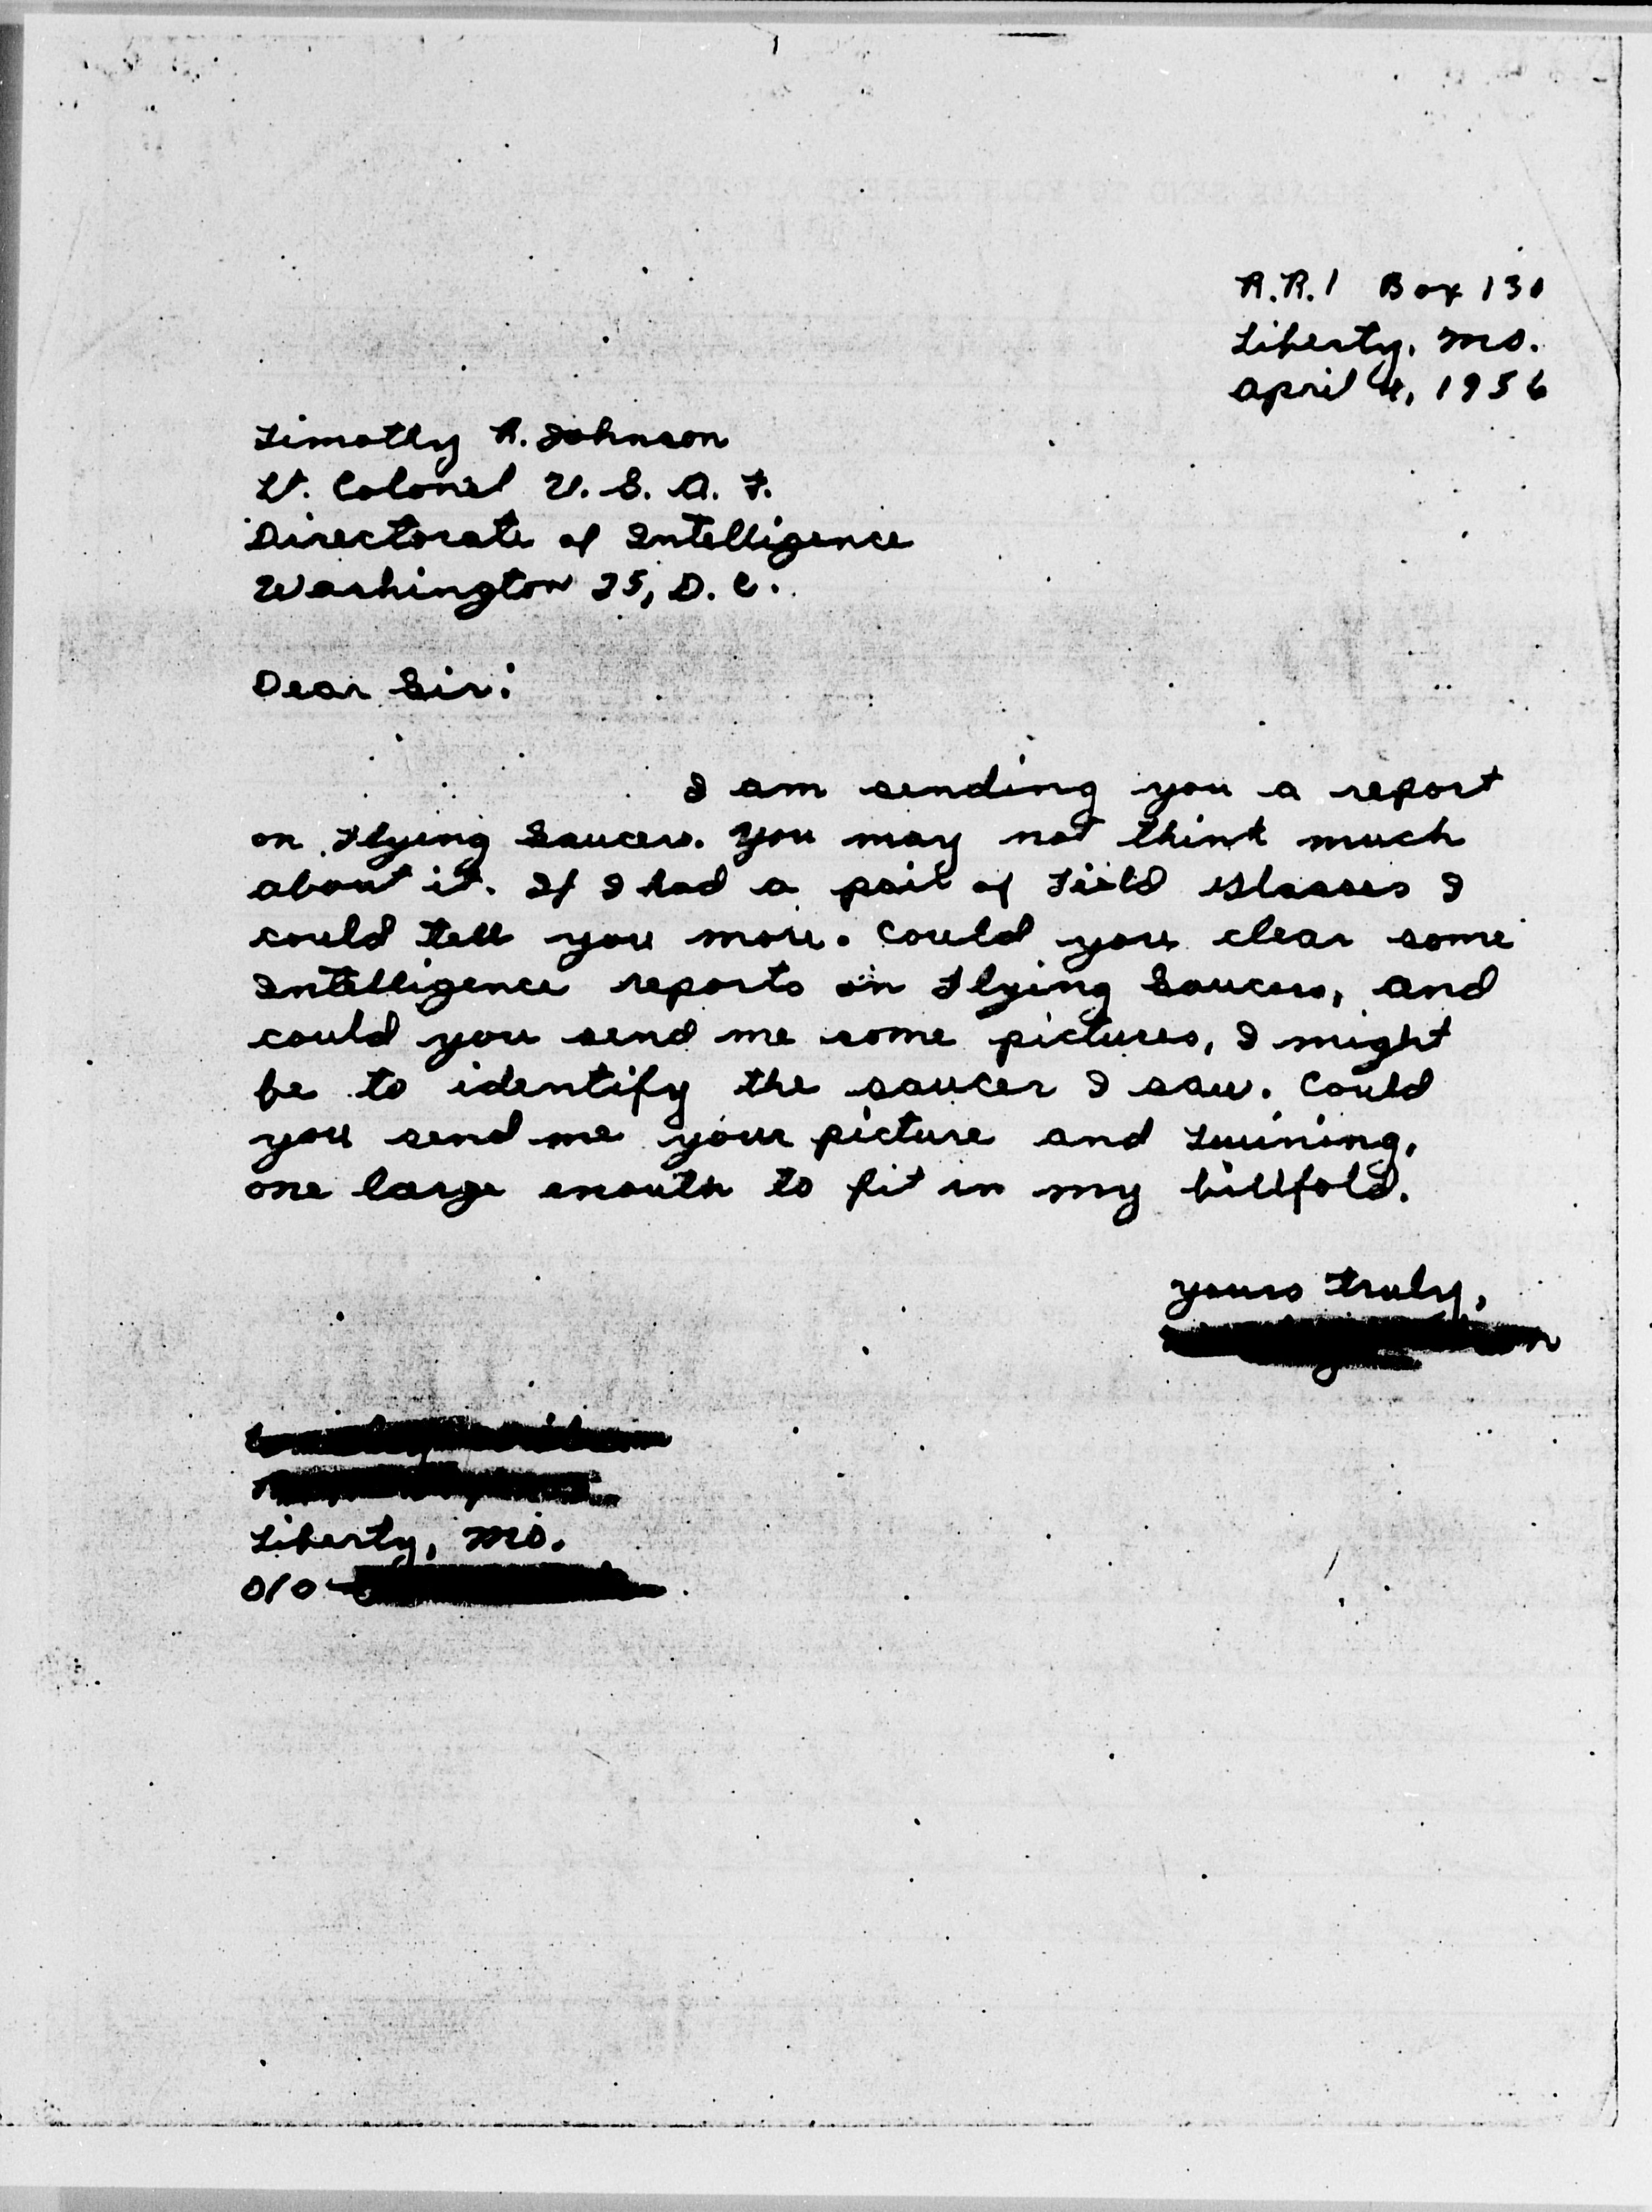 R.R.1 Box 130
Liberty, Mo.
April 4, 1956
Timothy R. Johnson
Lt. Colonel U. S. A. F.
Directorate of Intelligence
Washington 25, D. C.
Dear Sir:
I am sending you a report
on Flying Saucers. You may not think much
about it. If I had a pair of Field Glasses I
could tell you more. Could you clear some
Intelligence reports on Flying Saucers, and
could you send me some pictures, I might
be to identify the saucer I saw. Could
you send me your picture and Twining,
one large enouth to fit in my billfold.
Yours truly,
Liberty, Mo.